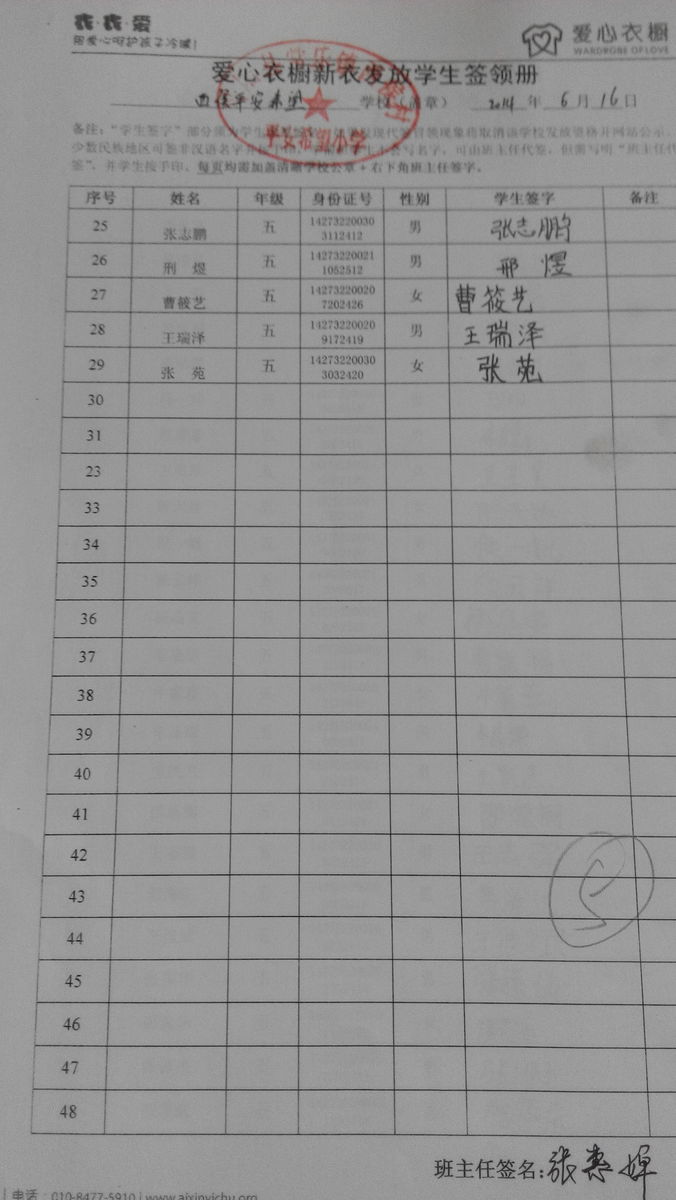 衣·衣·爱
用爱心呵护孩子冷暖!
爱心衣橱
WARDROBE OF LOVE
爱心衣橱新衣发放学生签领册
学校(盖章) 2014年6月16日
少数民族地区可签非汉语名字并按手印 可由班主任代签,但需写明“班主任代
签”,并学生按手印。每页均需加盖清晰学校公章+右下角班主任签字。
序号 姓名 年级 身份证号 性别 学生签字 备注
25 张志鹏 五 142732200303112412 男 张志鹏
26 荆 煜 五 142732200211052512 男 邢 煜
27 曹筱艺 五 142732200207202426 女 曹筱艺
28 王瑞泽 五 142732200209172419 男 王瑞泽
29 张 苑 五 142732200303032420 女 张苑
30
31
23
33
34
35
36
37
38
39
40
41
42
43
44
45
46
47
48
班主任签名:张惠婵
电话:010-8477-5910 | www.aixinyichu.org